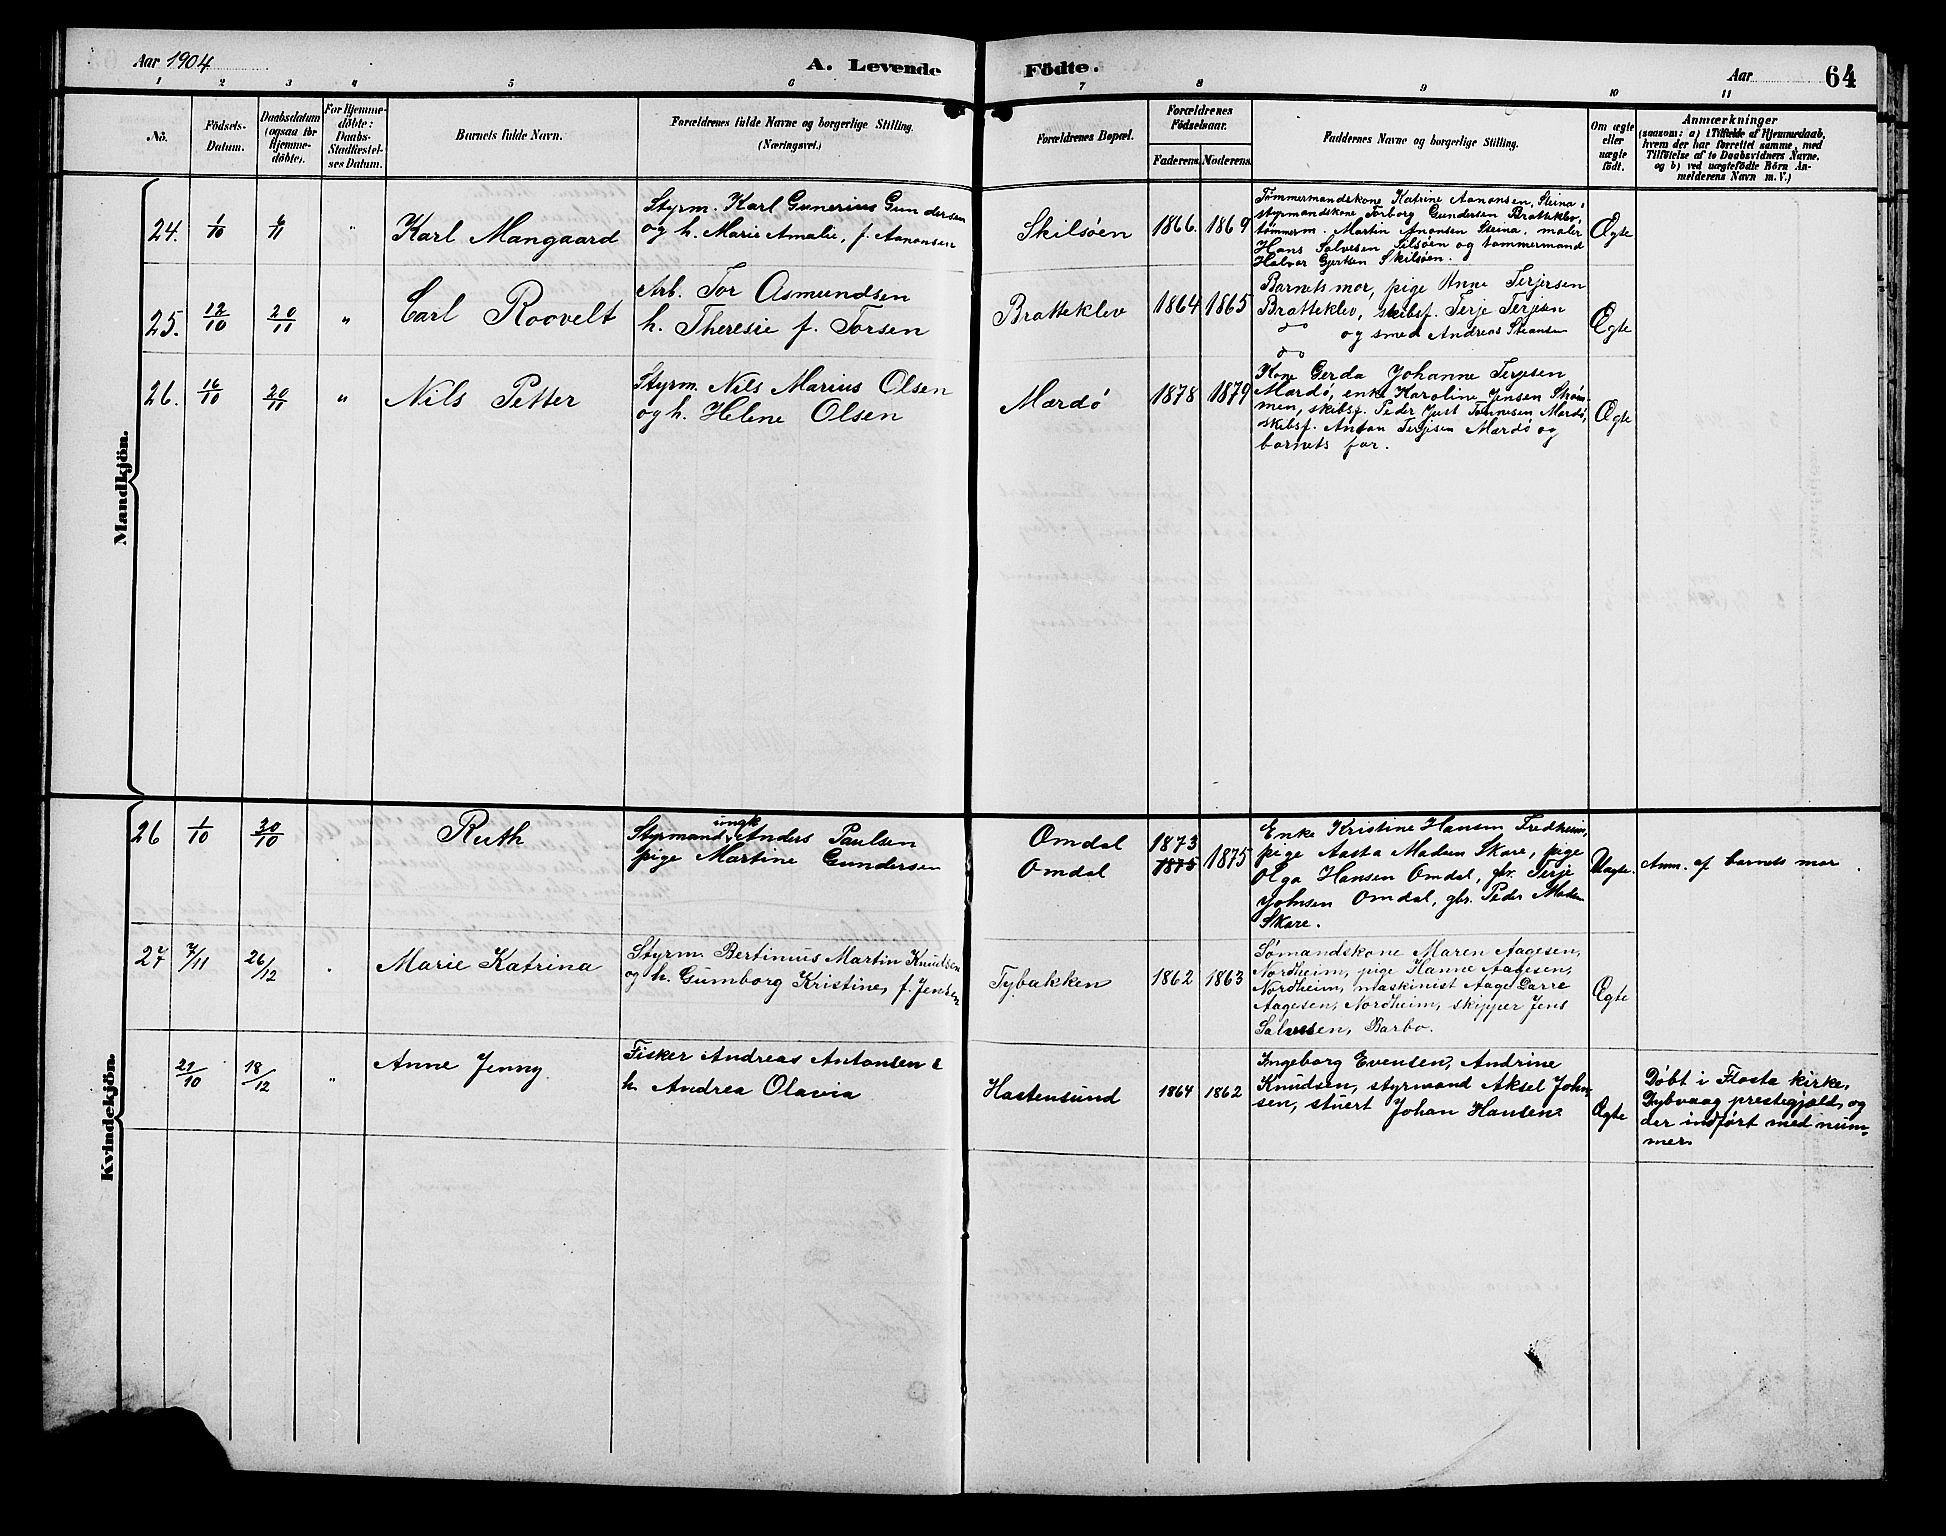 Aar 1904
A. Levende Födte.
Aar 64
1 2 3 4 5 6 7 8 9 10 11
No.
Födsels-
Datum.
Daabsdatum
(ogsaa for
Hjemme-
döbte).
For Hjemme-
döbte:
Daabs-
Stadfæstel-
ses Datum.
Barnets fulde Navn.
Forældrenes fulde Navne og borgerlige Stilling.
(Næringsvei.)
Forældrenes Bopæl.
Forældrenes
Födselsaar.
Faderens. Moderens.
Faddernes Navne og borgerlige Stilling.
Om ægte
eller
uægte
födt.
Anmærkninger
(saasom: a) i Tilfælde af Hjemmedaab,
hvem der har forrettet samme, med
Tilföielse af to Daabsvidners Navne,
og b) ved uægtefödte Börn An-
melderens Navn m. V.)
Mandkjön.
24. 1/10 6/11 "
Karl Mangaard
Styrm. Karl Gunerius Gundersen
og h. Marie Amalie, f. Aanonsen
Skilsöen
1866. 1869
Tømmermandskone Katrine Aanonsen, Steina,
styrmandskone Torborg Gundersen Bratteklev,
tømmerm. Martin Anonsen Steina, maler
Hans Salvesen Silsöen og tømmermand
Halvor Gjertsen Skilsöen.
Ægte
25. 12/10 20/11 "
Carl Roovelt
Arb. Tor Osmundsen
h. Theresie f. Torsen
Bratteklev
1864 1865
Barnets mor, pige Anne Terjersen
Bratteklev, skibsf. Terje Terjesen
og smed Andreas Steansen
Ægte
26. 16/10 20/11 "
Nils Petter
Styrm. Nils Marius Olsen
og h. Helene Olsen
Mærdö
1878 1879
Kone Gerda Johanne Terjesen
Mærdö, enke Karoline Jensen Strøm-
men, skibsf. Peder Just Tønnesen Mærdö,
skibsf. Anton Terjesen Mærdö og
barnets far.
Ægte
Kvindekjön.
26 1/10 30/10
Ruth
ungk
Styrmand, Anders Paulsen
pige Martine Gundersen
Omdal
Omdal
1873
1875 1875
Enke Kristine Hansen Fredheim,
pige Aasta Madsen Skare, pige
Olga Hansen Omdal, gbr. Terje
Johnsen Omdal, gbr. Peder Madsen
Skare.
Uægte.
Anm. af barnets mor
27 7/11 26/12 "
Marie Katrina
Styrm. Bertinius Martin Knudsen
og h. Gumborg Kristine, f. Jensen
Tybakken
1862 1863
Sømandskone Maren Aagesen,
Nordheim, pige Hanne Aagesen,
Nordheim, maskinist Aage Darre
Aagesen, Nordheim, skipper Jens
Salvesen, Barbo.
Ægte
21/10 18/12 "
Anne Jenny
Fisker Andreas Antonsen &
h. Andrea Olavia
Hastensund
1864 1862
Ingeborg Evensen, Andrine
Knudsen, styrmand Aksel John-
sen, stuert Johan Hansen.
Ægte
Døbt i Flosta kirke,
Dybvaag prestegjæld, og
der indført med num-
mer.